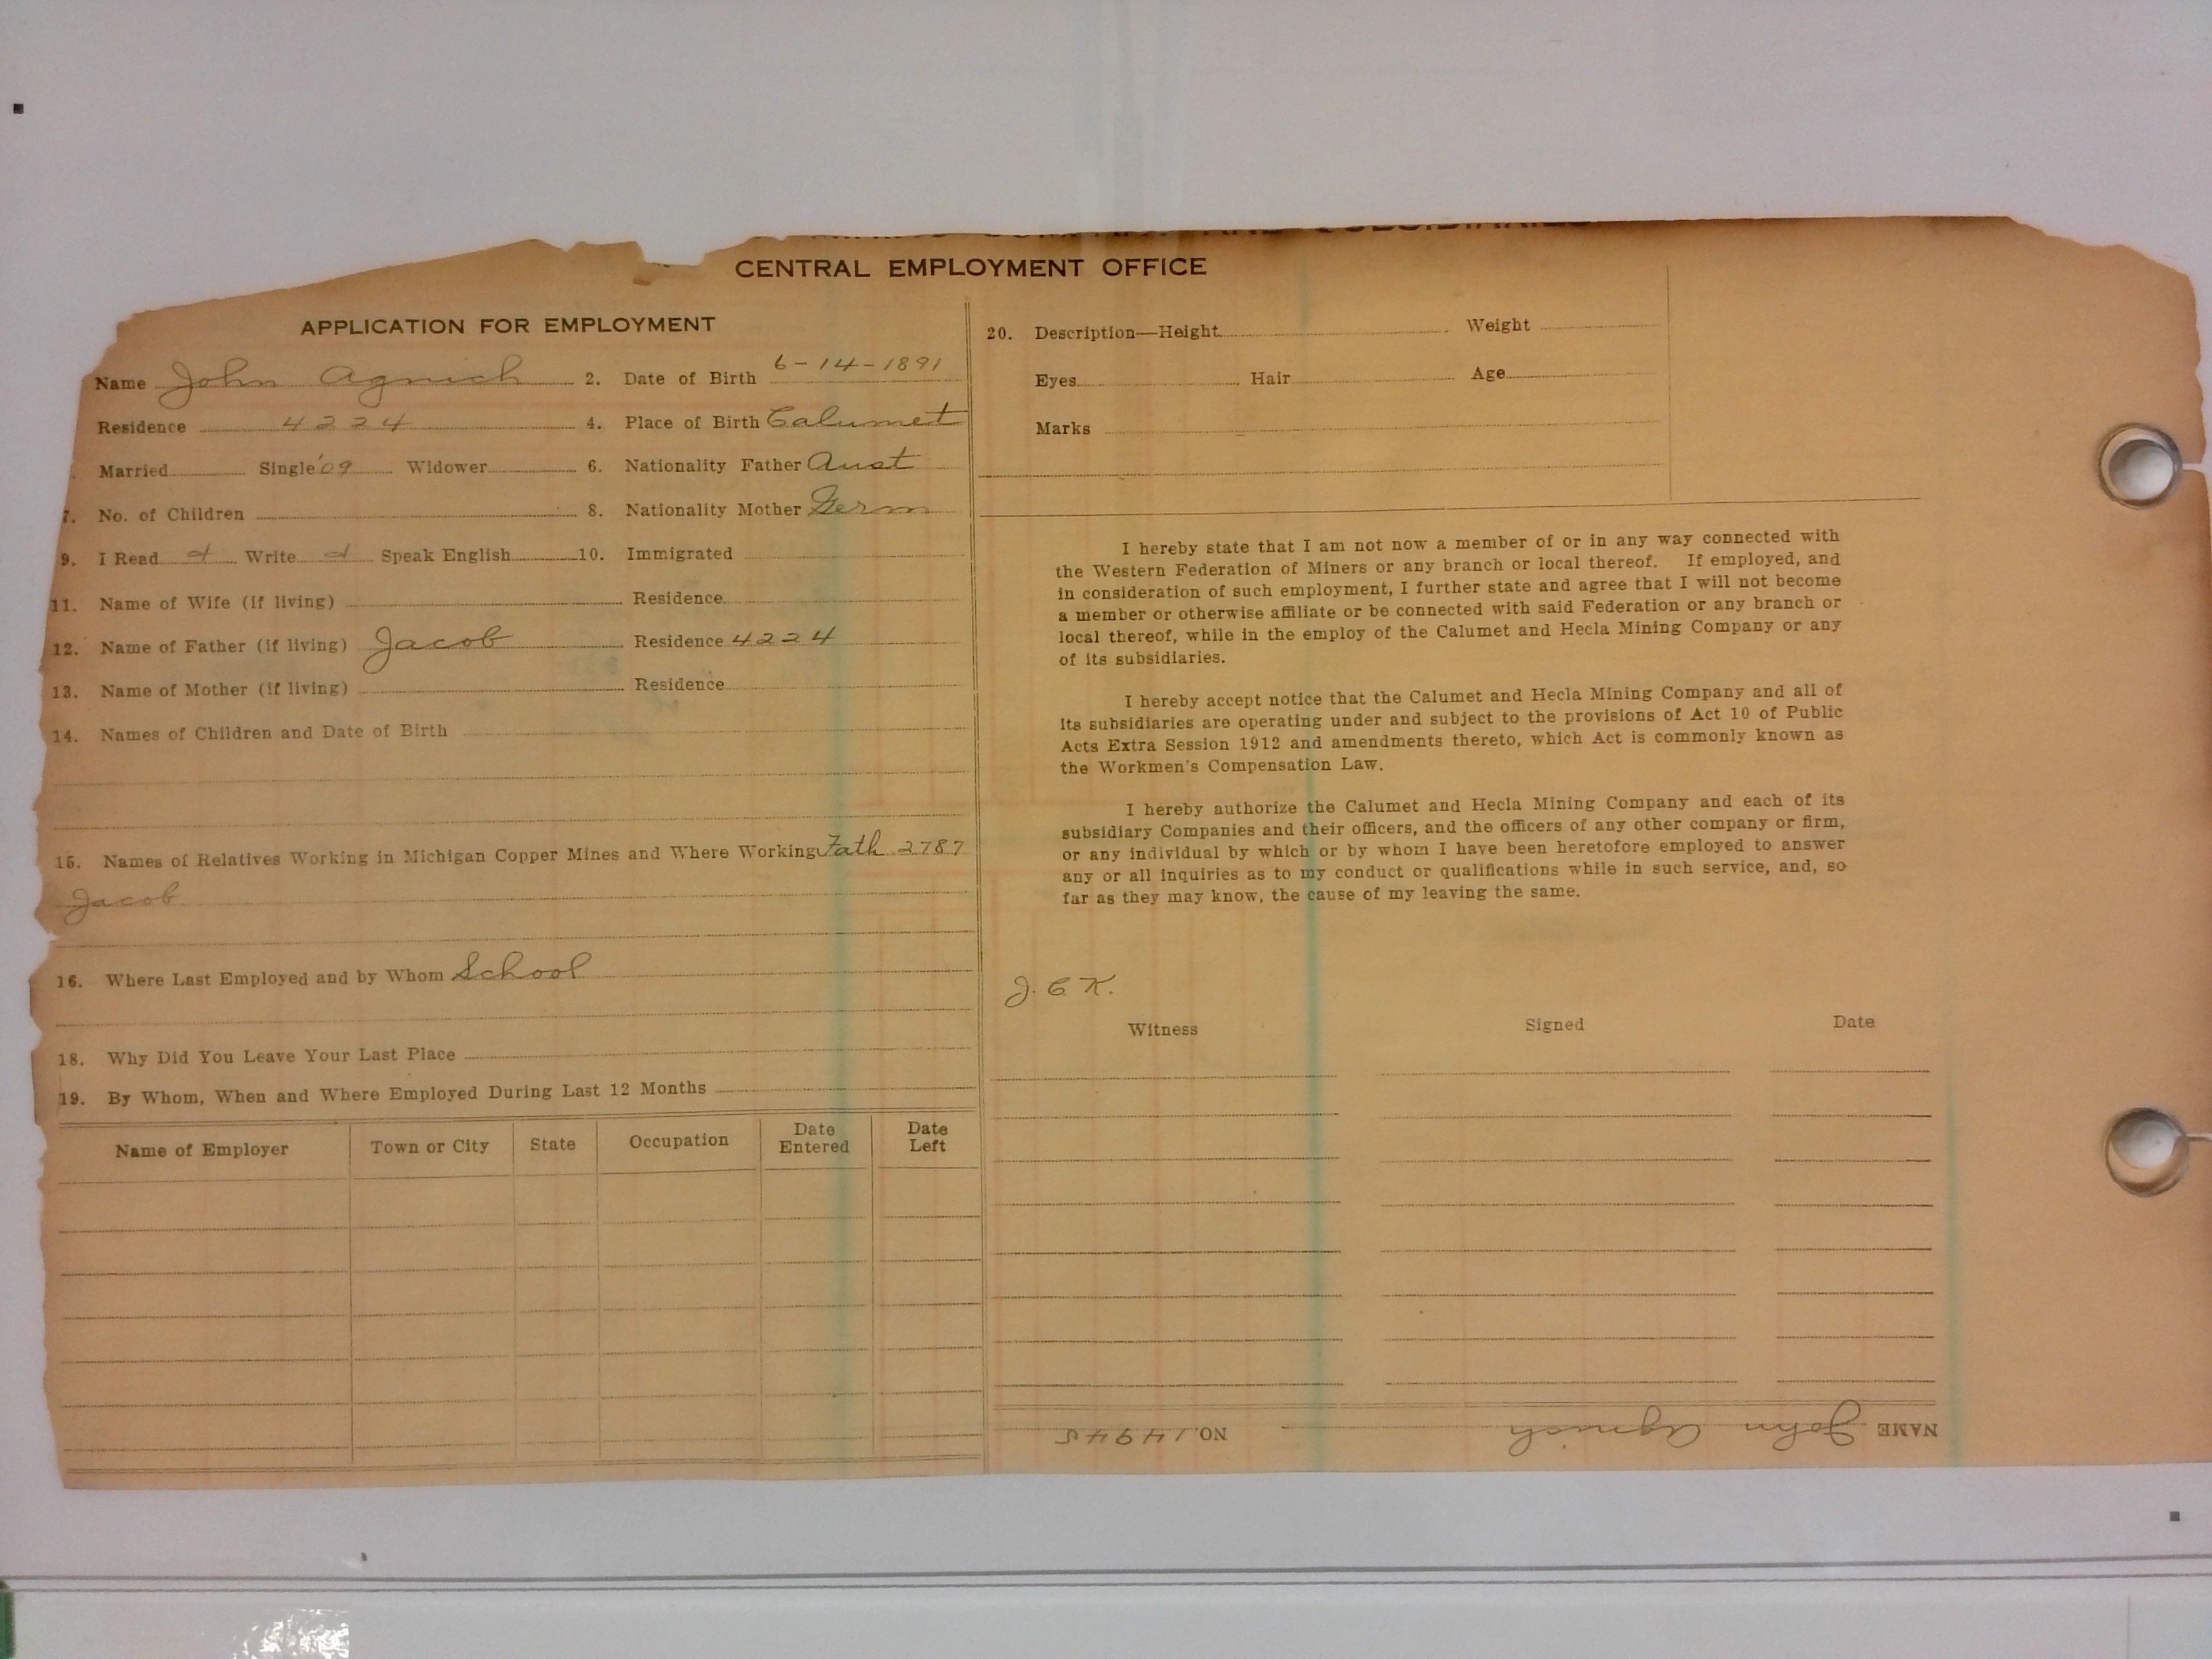 COMPANY AND SUBSIDIARIES
CENTRAL EMPLOYMENT OFFICE
APPLICATION FOR EMPLOYMENT
Name John Agnich 2. Date of Birth 6-14-1891
Residence 4224 4. Place of Birth Calumet
Married Single '09 Widower 6. Nationality Father Aust
7. No. of Children 8. Nationality Mother Germ
9. I Read Write Speak English 10. Immigrated
11. Name of Wife (if living) Residence
12. Name of Father (if living) Jacob Residence 4224
13. Name of Mother (if living) Residence
14. Names of Children and Date of Birth
15. Names of Relatives Working in Michigan Copper Mines and Where Working Fath 2787
Jacob
16. Where Last Employed and by Whom School
18. Why Did You Leave Your Last Place
19. By Whom, When and Where Employed During Last 12 Months
Name of Employer Town or City State Occupation Date Entered Date Left
20. Description—Height Weight
Eyes Hair Age
Marks
I hereby state that I am not now a member of or in any way connected with
the Western Federation of Miners or any branch or local thereof. If employed, and
in consideration of such employment, I further state and agree that I will not become
a member or otherwise affiliate or be connected with said Federation or any branch or
local thereof, while in the employ of the Calumet and Hecla Mining Company or any
of its subsidiaries.
I hereby accept notice that the Calumet and Hecla Mining Company and all of
its subsidiaries are operating under and subject to the provisions of Act 10 of Public
Acts Extra Session 1912 and amendments thereto, which Act is commonly known as
the Workmen's Compensation Law.
I hereby authorize the Calumet and Hecla Mining Company and each of its
subsidiary Companies and their officers, and the officers of any other company or firm,
or any individual by which or by whom I have been heretofore employed to answer
any or all inquiries as to my conduct or qualifications while in such service, and, so
far as they may know, the cause of my leaving the same.
J. C. K.
Witness Signed Date
NAME John Agnich NO. 14945